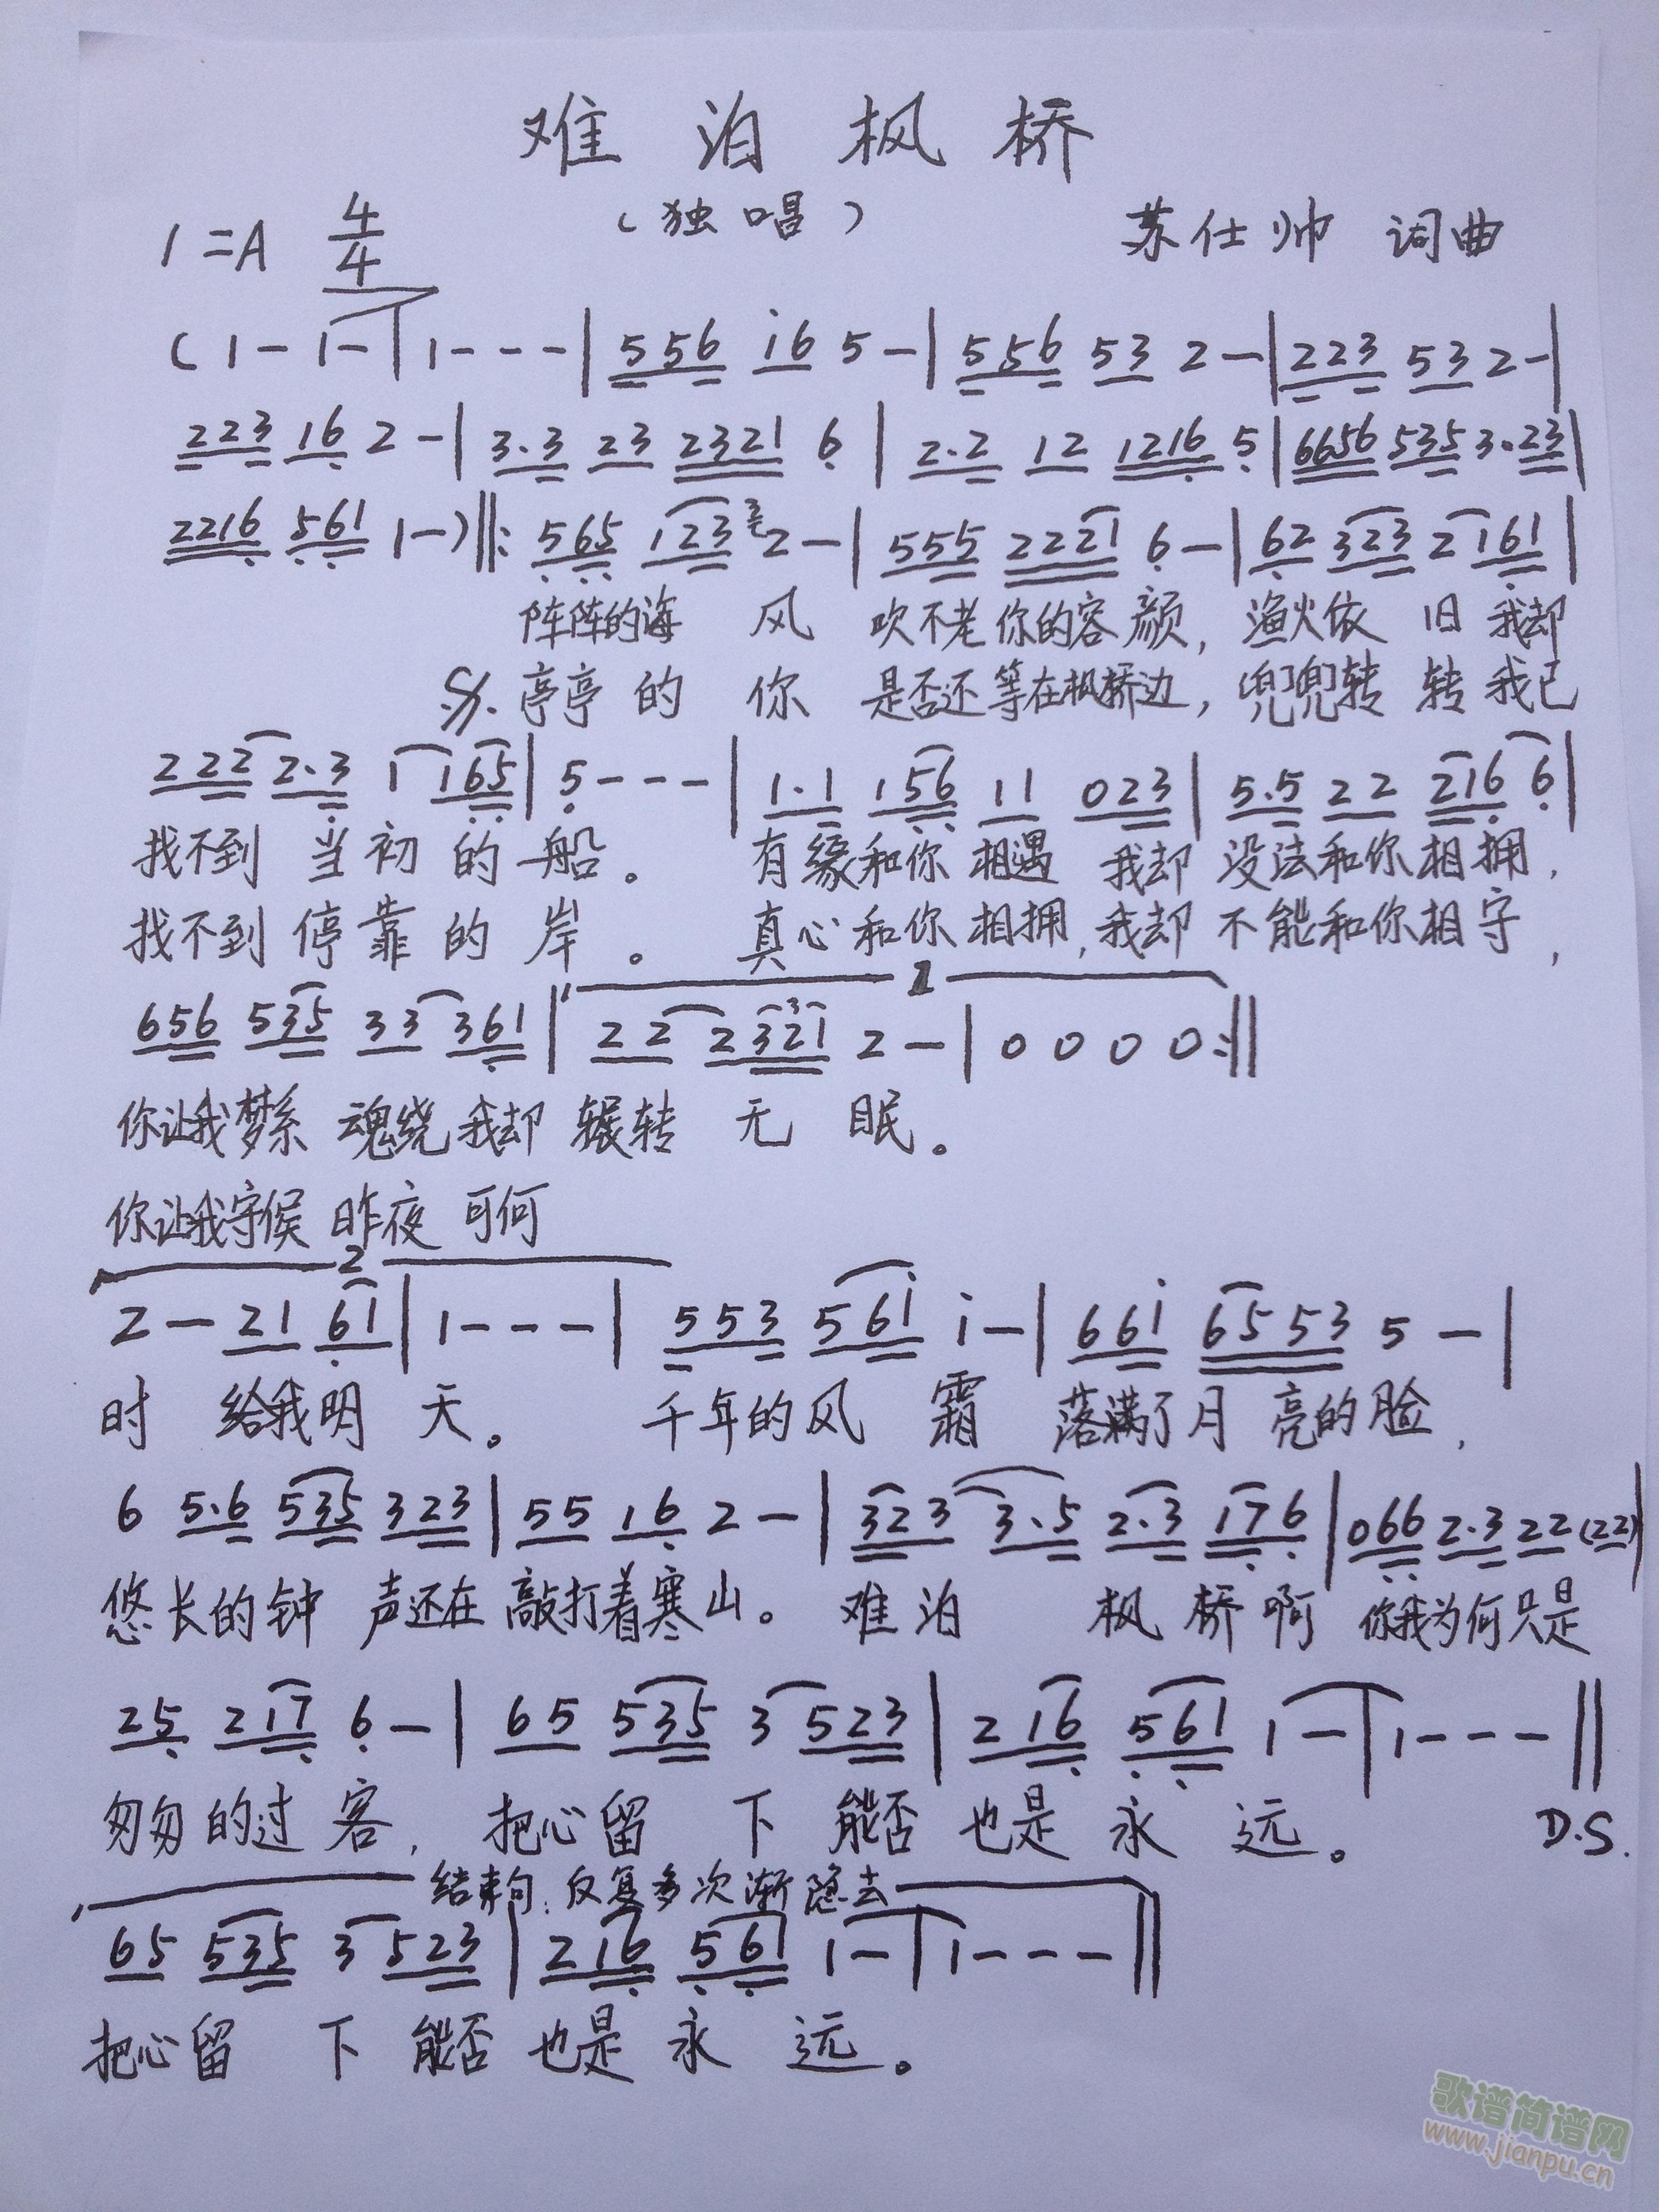 难泊枫桥
1=A 4/4 （独唱） 苏仕帅 词曲
(1-1-|1---|556 i6 5-|556 53 2-|223 53 2-|
223 16 2-|3·3 23 2321 6|2·2 12 1216 5|6656 535 3·23|
2216 561 1-)‖: 565 123 3 2-|555 2221 6-|62 323 2161|
阵阵的海 风 吹不老你的容颜，渔火依 旧 我却
亭亭 的 你 是否还等在枫桥边，兜兜转 转 我已
222 2·3 1 165|5---|1·1 156 11 023|5·5 22 216 6|
找不到 当初 的 船。 有缘和你 相遇 我却 没法和你相拥，
找不到 停靠 的 岸。 真心和你 相拥，我却 不能和你相守，
1
656 535 33 361|22 2321 3 2-|0 0 0 0:‖
你让我梦系 魂绕 我却 辗转 无 眠。
你让我守候 昨夜 可何
2
2-21 61|1---|553 561 i-|66i 6553 5-|
时 给我明 天。 千年的风 霜 落满了月 亮的脸，
6 5·6 535 323|55 16 2-|323 3·5 2·3 176|066 2·3 22 (22)|
悠长的钟 声还在 敲打着寒山。 难泊 枫 桥啊 你我为何只是
25 217 6-|65 535 3 523|216 561 1-|1---‖
匆匆的过 客， 把心留 下 能否 也是 永 远。 D.S.
结束句：反复多次渐隐去
65 535 3 523|216 561 1-|1---‖
把心留 下 能否 也是 永 远。
歌谱简谱网
www.jianpu.cn